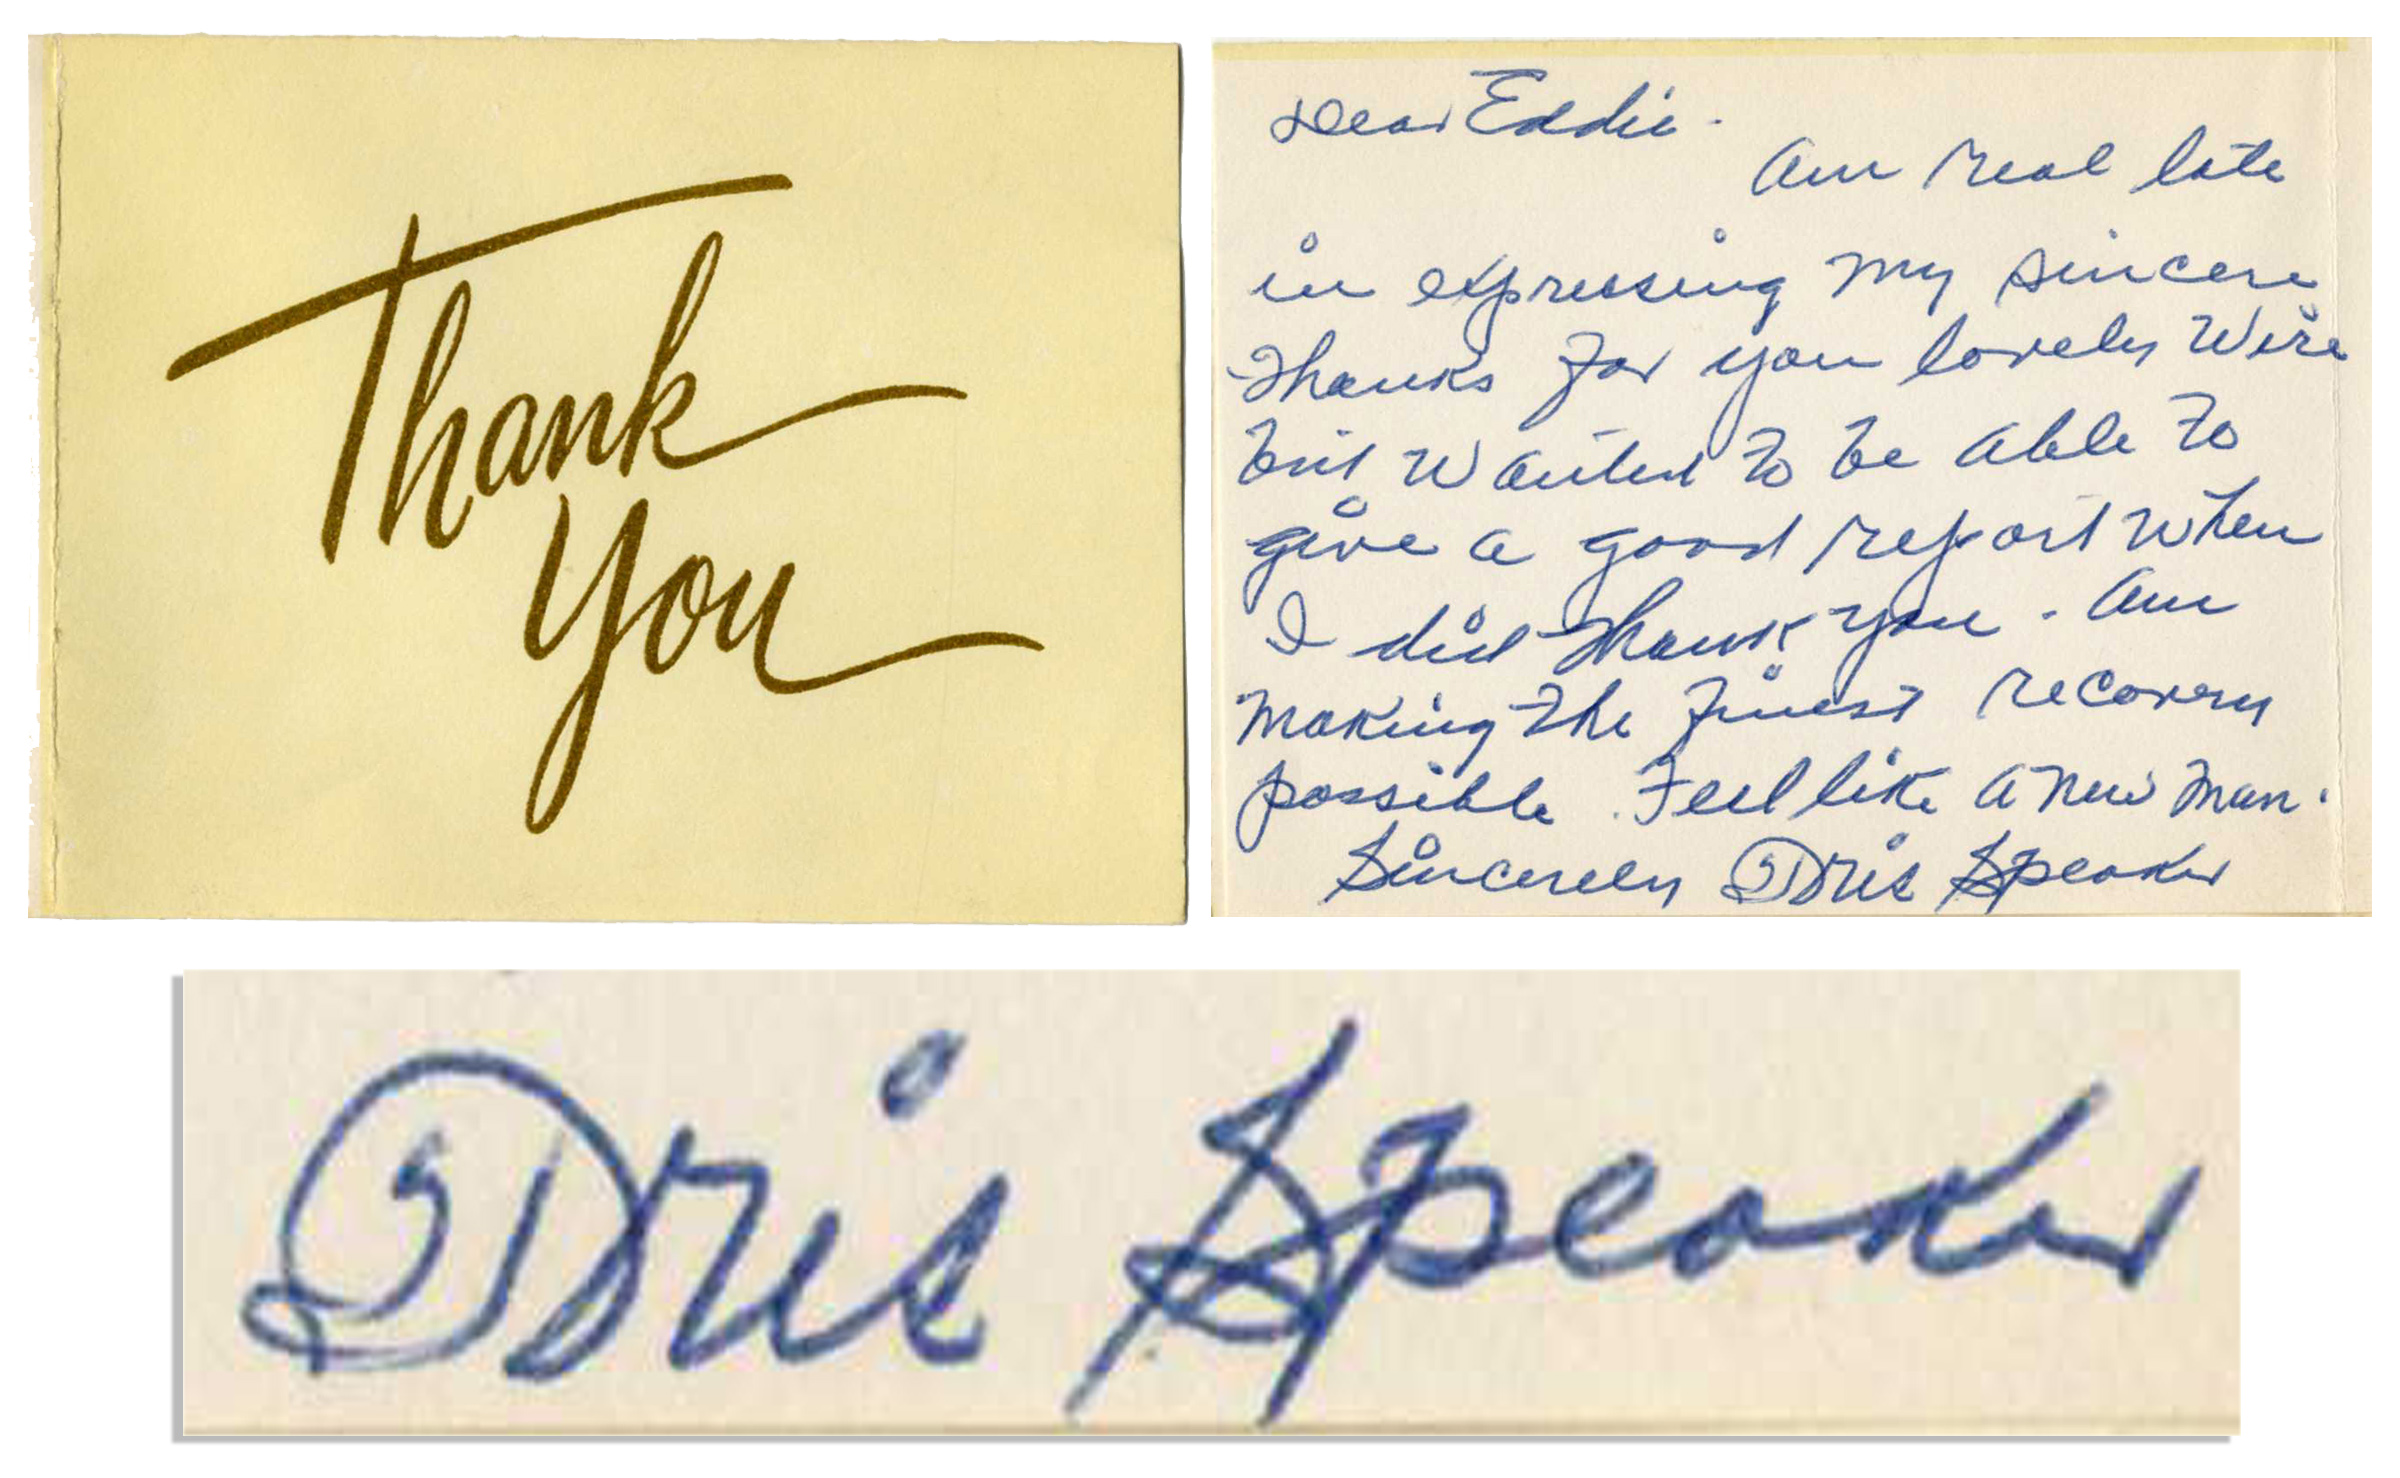 Thank
You
Dear Eddie.
Am real late
in expressing my sincere
Thanks for you lovely Wire
but Waited to be able to
give a good report when
I did Thank you. Am
Making The finest recovery
possible. Feel like a new man.
Sincerely Tris Speaker
Tris Speaker